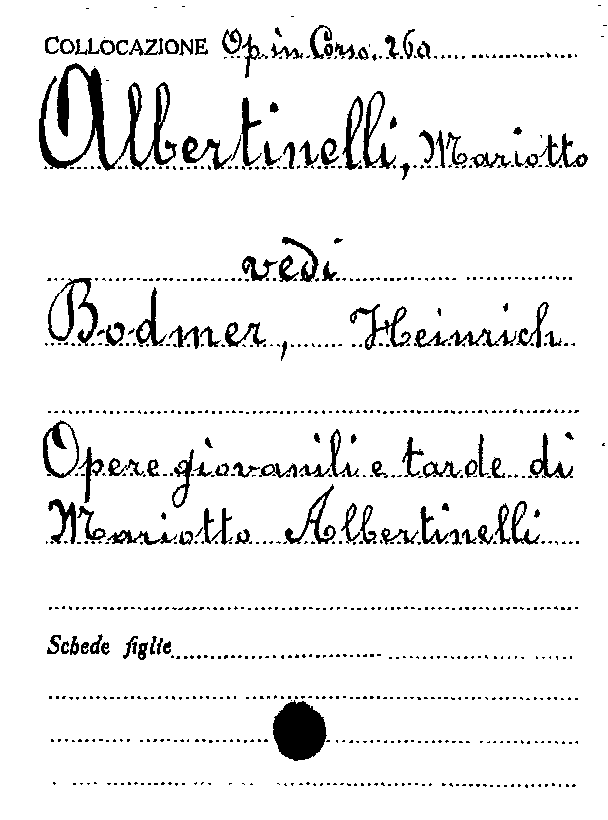 COLLOCAZIONE Op. in Corso. 26a
Albertinelli, Mariotto
vedi
Bodmer, Heinrich
Opere giovanili e tarde di
Mariotto Albertinelli
Schede figlie